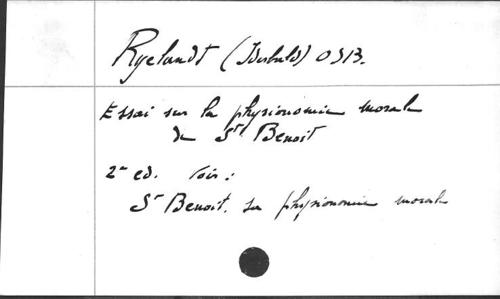 Ryelandt (Idesbald) OSB.
Essai sur la physionomie morale
de St Benoit
2e ed. Voir :
St Benoit, sa physionomie morale